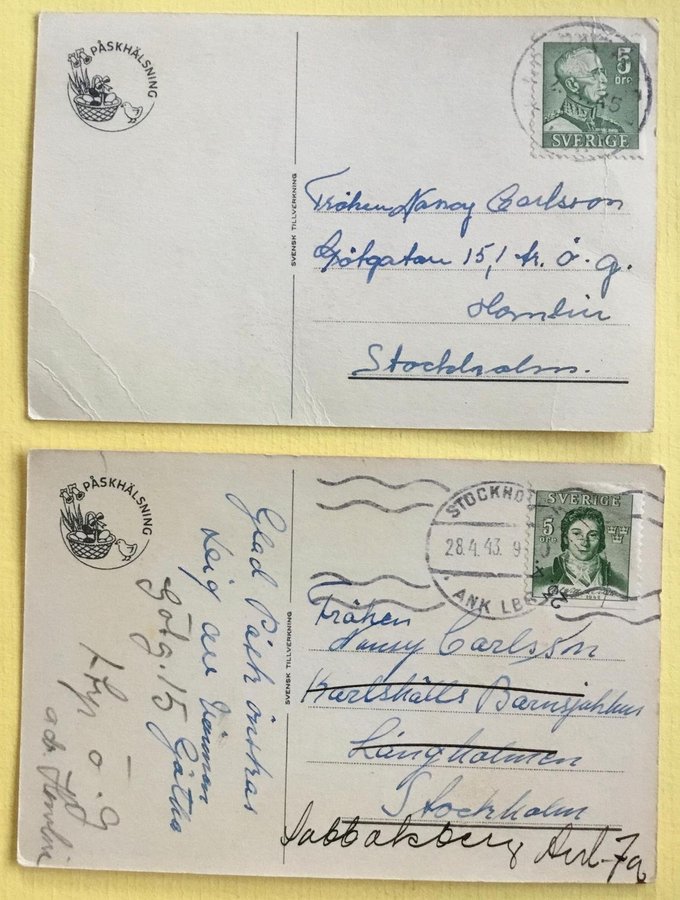 PÅSKHÄLSNING
5
öre
SVERIGE
45
SVENSK TILLVERKNING
Fröken Nancy Carlsson
Götgatan 15, 1 tr. ö. g.
Stockholm.
PÅSKHÄLSNING
Glad Påsk önskas
dig av vännen
Götha
Götg. 15
ö. g
SVENSK TILLVERKNING
STOCKHO
28.4.43. 9
ANK LBR
SVERIGE
5
öre
Fröken
Nancy Carlsson
Karlshälls Barnsjukhus
Långholmen
Stockholm
Sabbatsberg